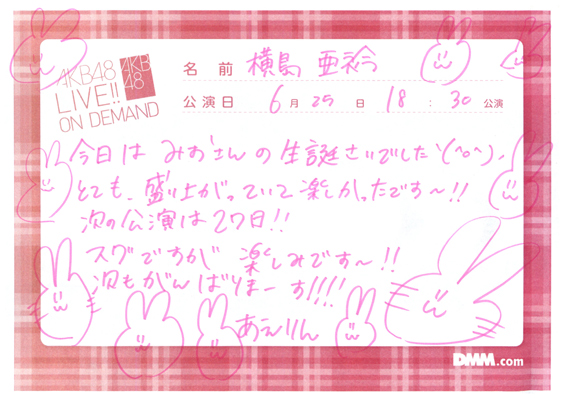 AKB48
LIVE!!
ON DEMAND
AKB
48
名前 横島 亜衿
公演日 6月25日 18:30公演
今日は みおさんの生誕さいでした(^o^)
とても、盛り上がっていて楽しかったです〜!!
次の公演は27日!!
スグですが 楽しみです〜!!
次もがんばりまーす!!!!
あえりん
DMM.com